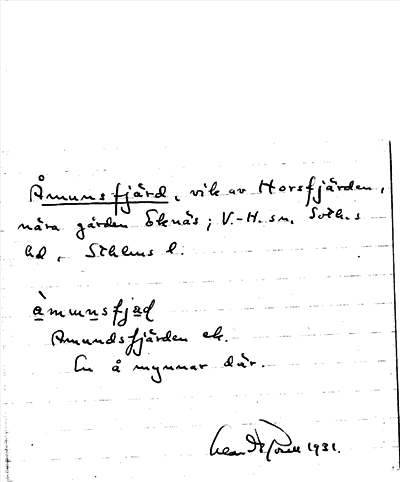 Åmunsfjärd, vik av Horsfjärden,
nära gården Eknäs; V.-H. sn. Soth.s
hd, Sthlms l.
åmunsfjad
Amundsfjärden ek.
En å mynnar där.
1931.